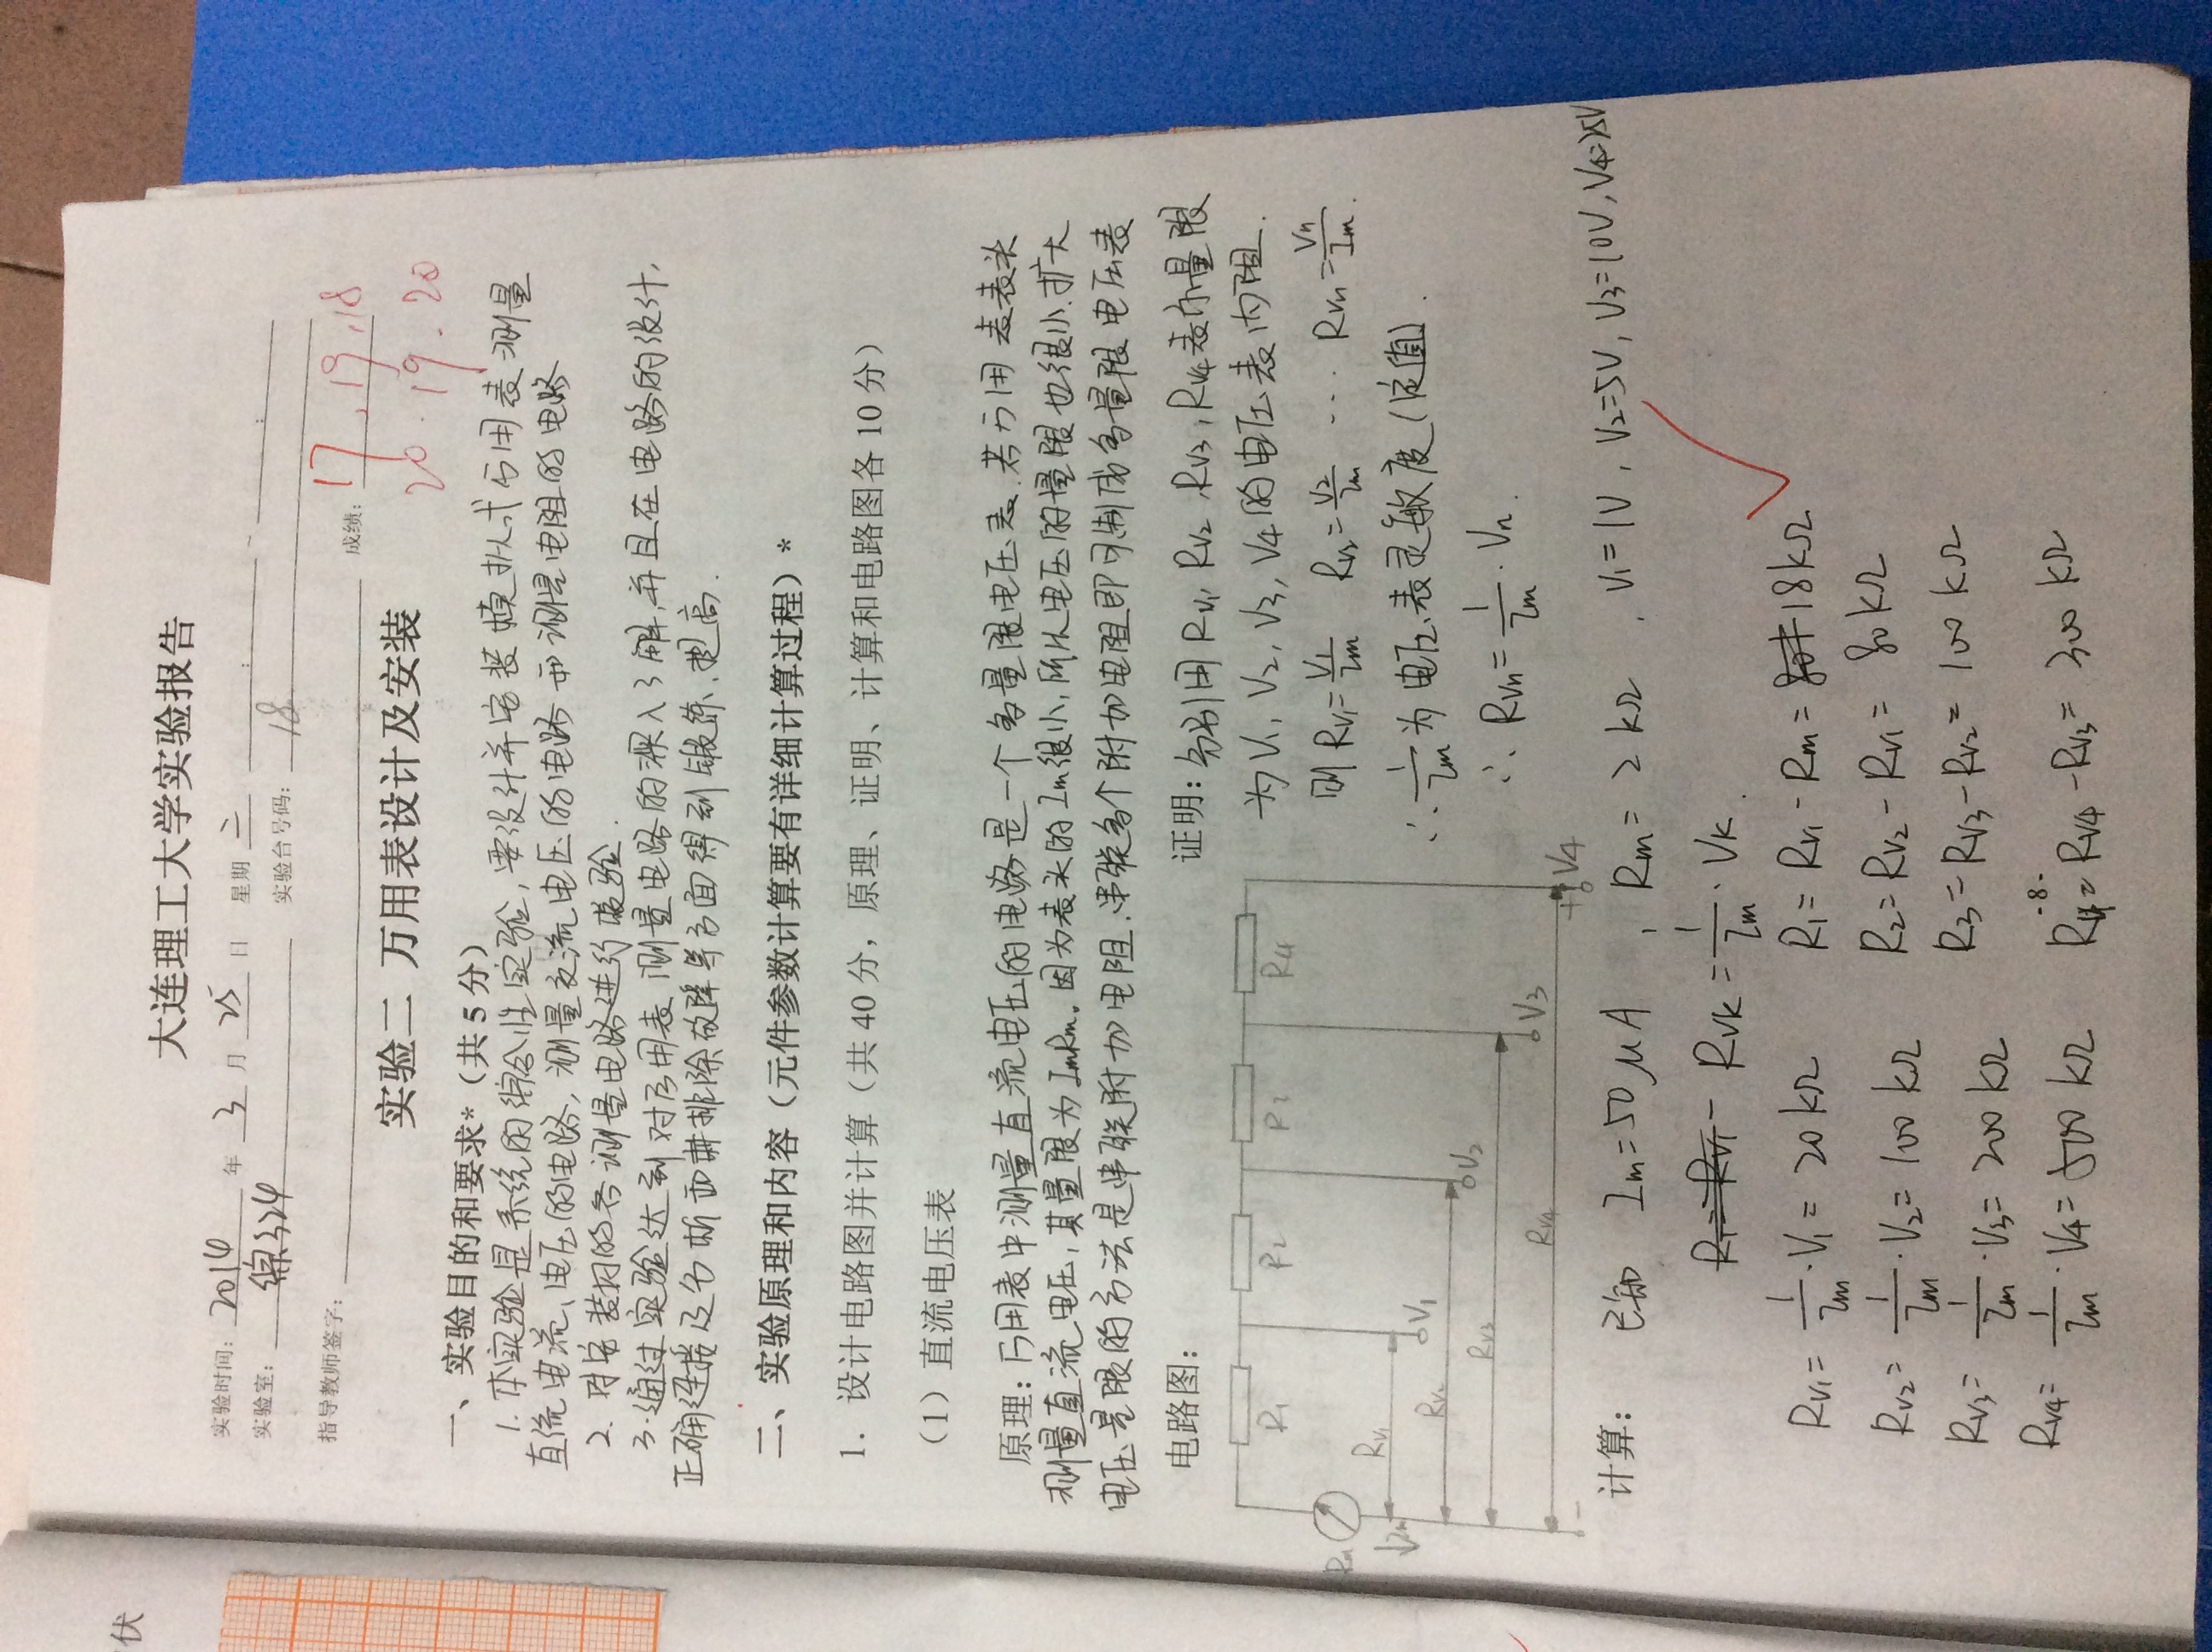 伏
大连理工大学实验报告
实验时间: 2014 年 3 月 25 日 星期 二 : ~ :
实验室: 综324 实验台号码: 18
指导教师签字: 成绩: 17, 19, 18
20 . 19 . 20
实验二 万用表设计及安装
一、实验目的和要求*(共 5 分)
1. 本实验是系统的综合性实验,要设计并安装模拟式万用表测量
直流电流、电压的电路,测量交流电压的电路和测量电阻的电路
2. 对安装好的各测量电路进行校验.
3. 通过实验达到对万用表测量电路的深入了解,并且在电路的设计,
正确连接及分析和排除故障等方面得到锻炼、提高.
二、实验原理和内容(元件参数计算要有详细计算过程)*
1. 设计电路图并计算(共 40 分,原理、证明、计算和电路图各 10 分)
(1)直流电压表
原理: 万用表中测量直流电压的电路是一个多量限电压表.若万用表表头
测量直流电压,其量限为ImRm。因为表头的Im很小,所以电压的量限也很小.扩大
电压量限的方法是串联附加电阻.串联多个附加电阻即可制成多量限电压表
电路图:
R1 R2 R3 R4
Rm
Im
RV1
V1
RV2
V2
RV3
V3
RV4
- + V4
证明: 分别用 RV1, RV2, RV3, RV4表示量限
为V1, V2, V3, V4的电压表内阻.
则 RV1=V1/Im RV2=V2/Im … RVn=Vn/Im.
∴ 1/Im 为电压表灵敏度(定值).
∴ RVn= 1/Im · Vn.
计算: 已知 Im=50μA , Rm= 2 kΩ , V1=1V, V2=5V, V3=10V, V4=25V
R1=RV1- RVK = 1/Im · VK.
RV1= 1/Im · V1= 20 kΩ R1= RV1-Rm= 18kΩ
RV2= 1/Im · V2= 100 kΩ R2= RV2-RV1= 80kΩ
RV3= 1/Im · V3= 200 kΩ R3= RV3-RV2= 100 kΩ
-8-
RV4= 1/Im · V4= 500 kΩ R4= RV4-RV3= 300 kΩ